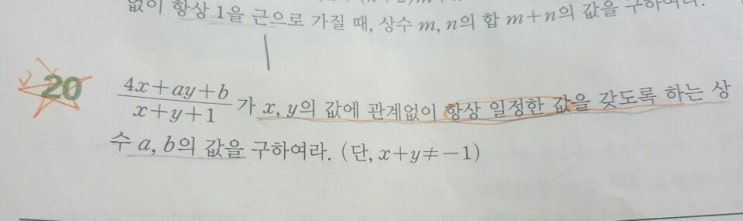 없이 항상 1을 근으로 가질 때, 상수 m, n의 합 m+n의 값을 구하여라.
20 (4x+ay+b)/(x+y+1) 가 x, y의 값에 관계없이 항상 일정한 값을 갖도록 하는 상
수 a, b의 값을 구하여라. (단, x+y≠-1)